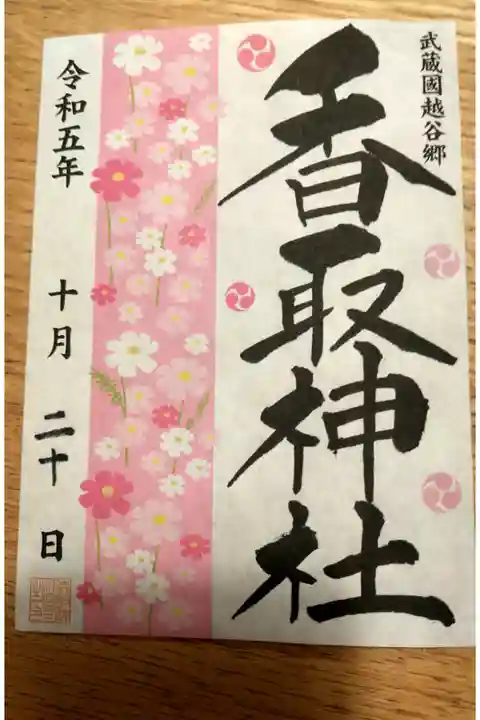 武蔵國越谷郷
香取神社
令和五年 十月 二十 日